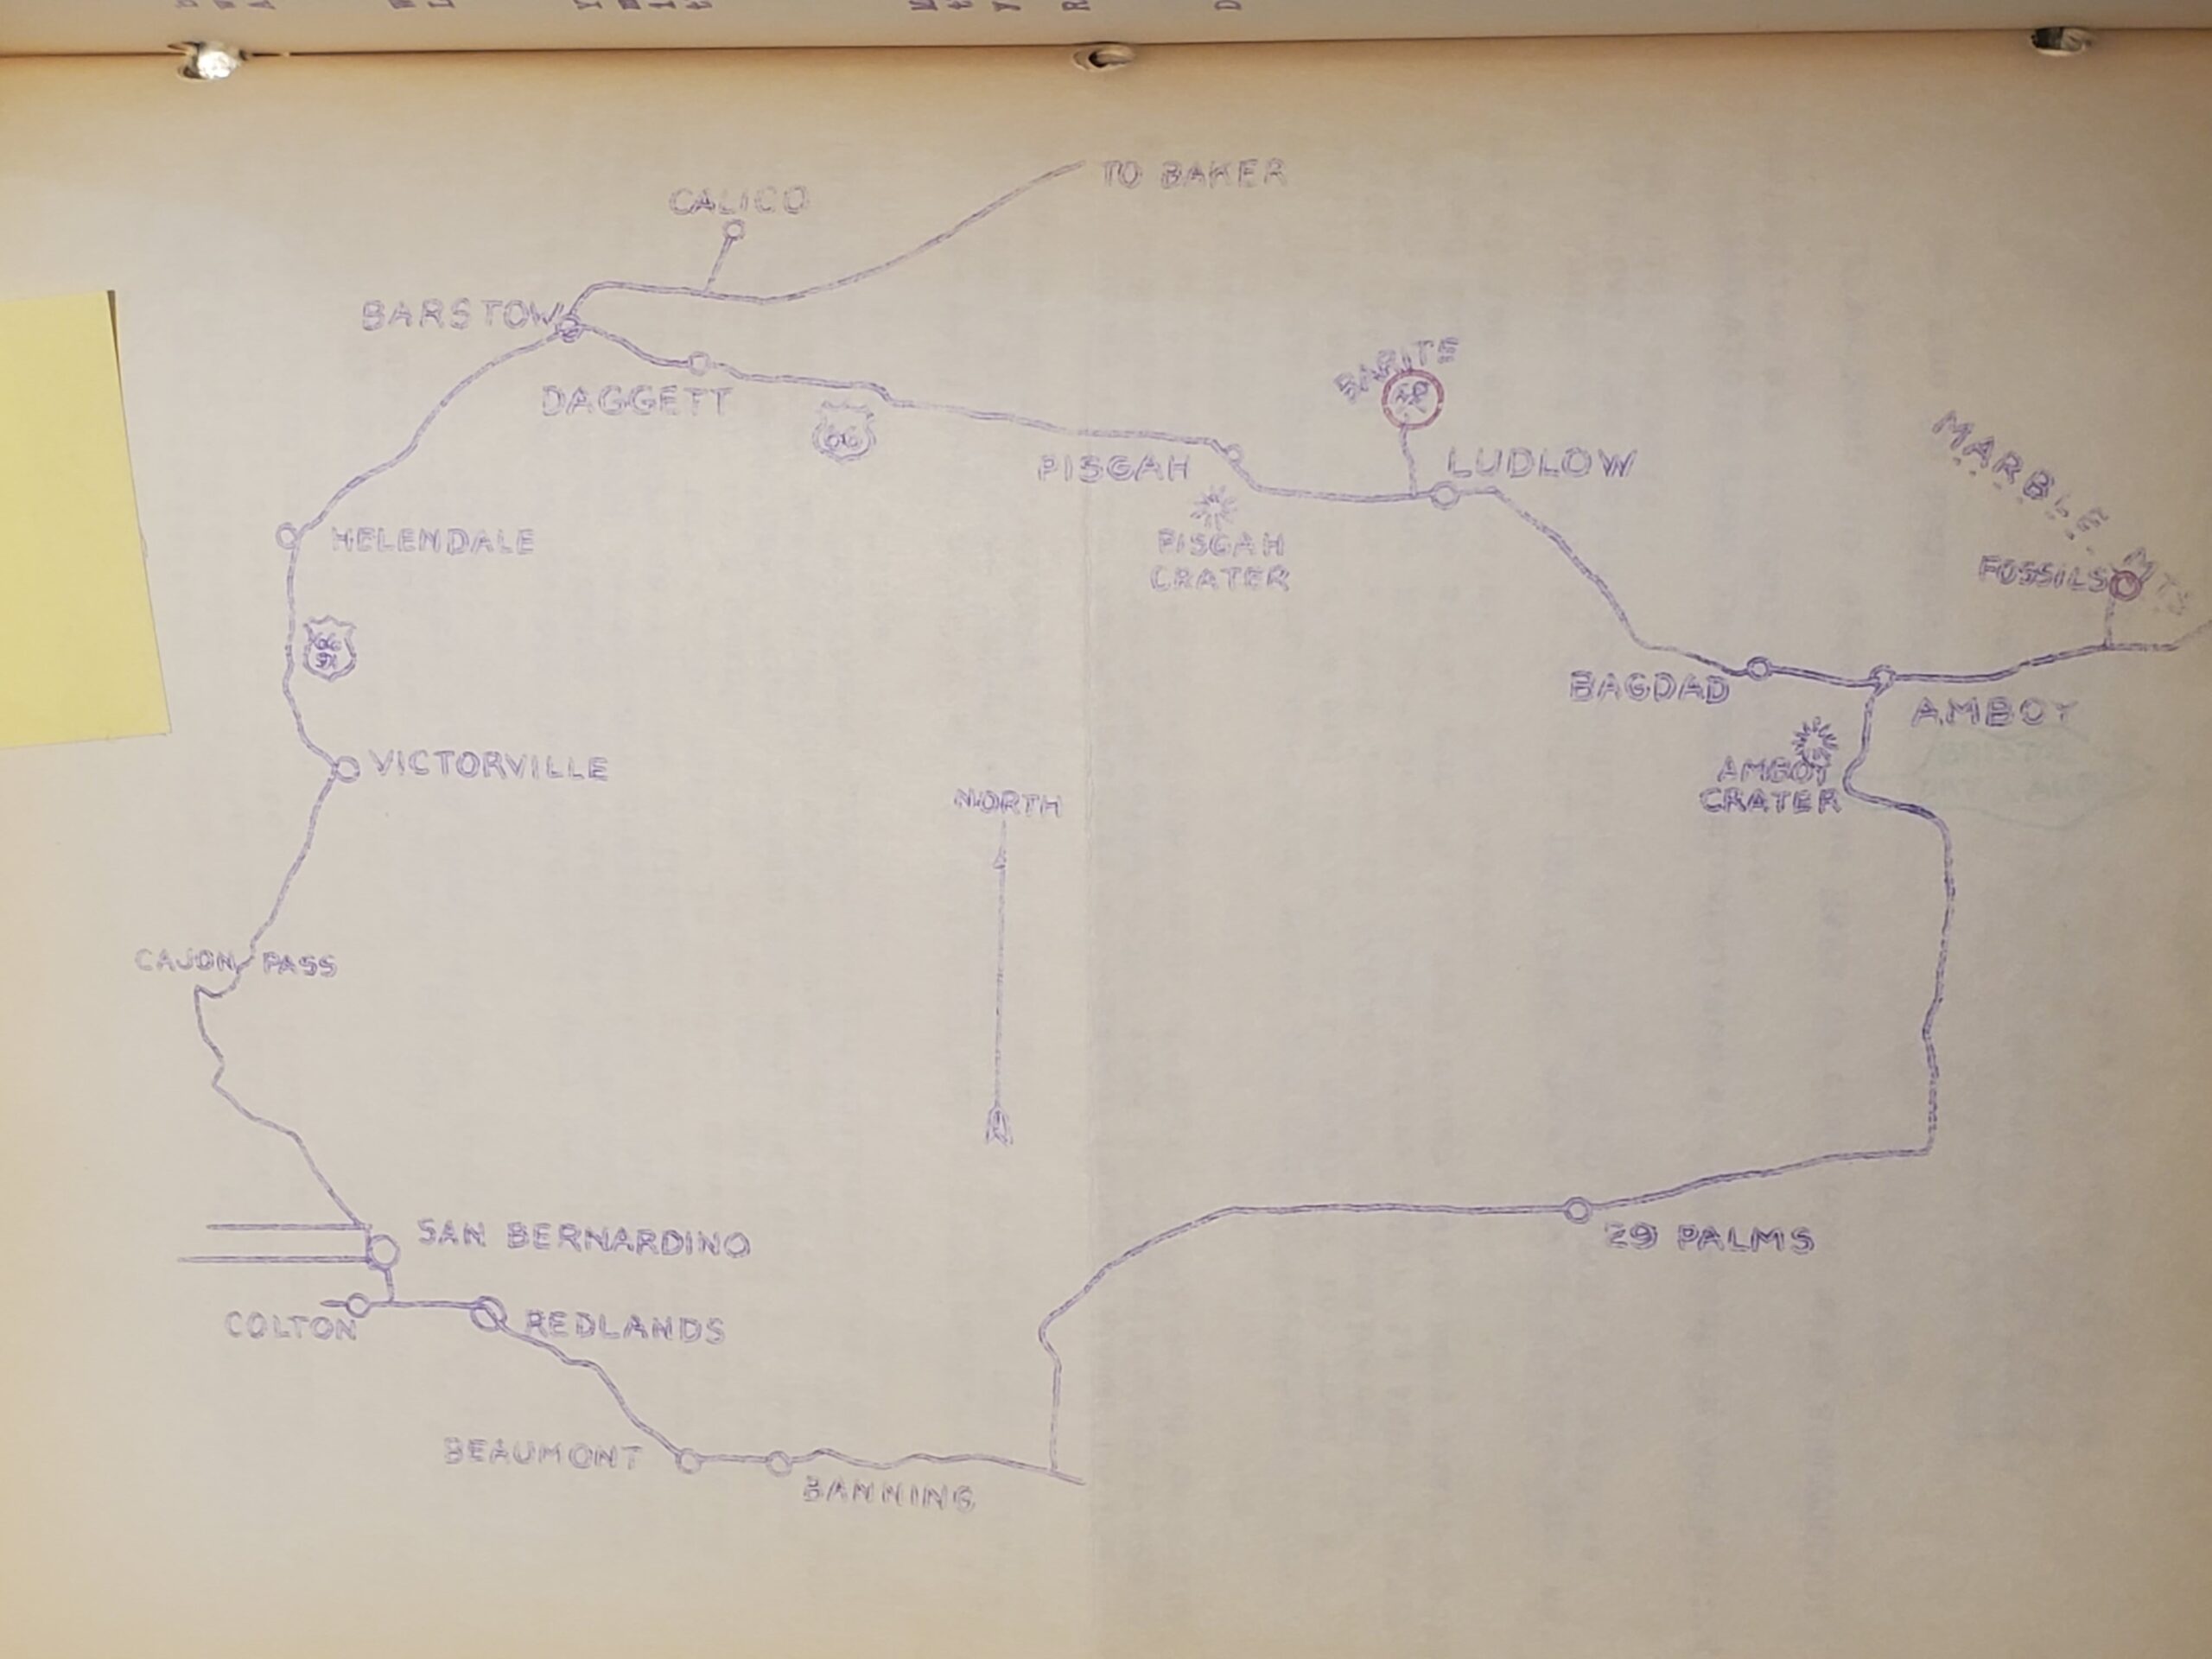 TO BAKER
CALICO
BARSTOW
DAGGETT
66
BARITE
PISGAH
LUDLOW
PISGAH
CRATER
MARBLE MTS
FOSSILS
HELENDALE
66
91
BAGDAD
AMBOY
VICTORVILLE
AMBOY
CRATER
NORTH
CAJON PASS
SAN BERNARDINO
29 PALMS
COLTON
REDLANDS
BEAUMONT
BANNING